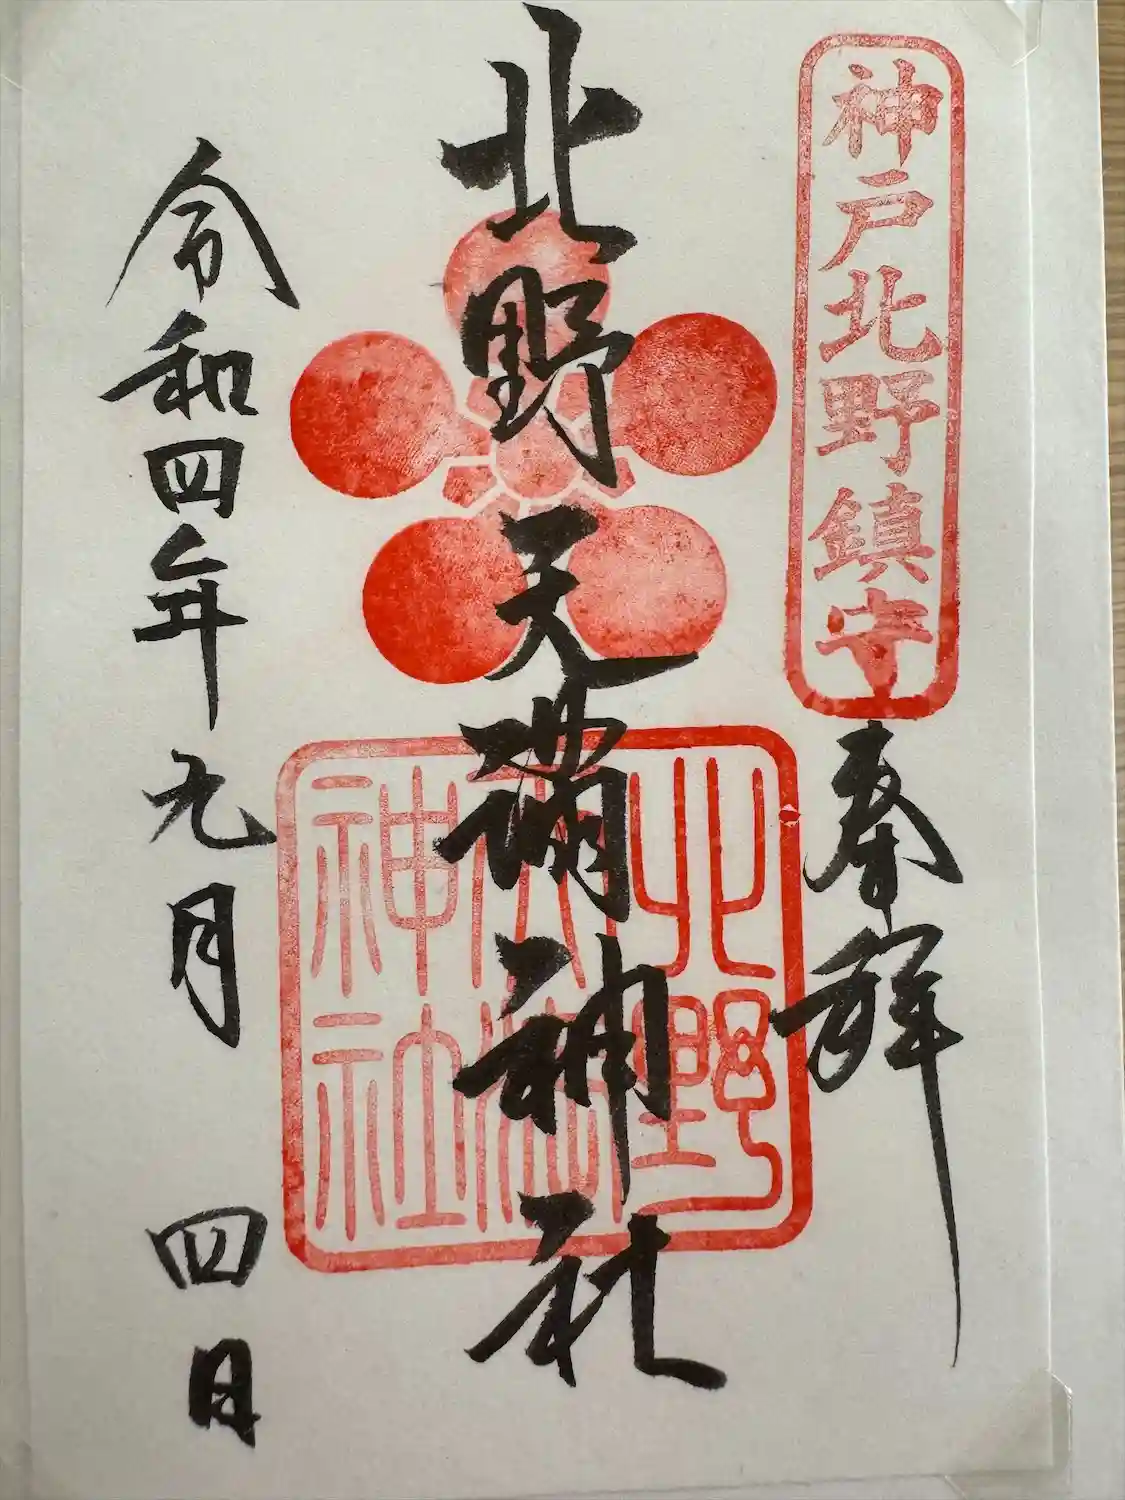 神戸北野鎮守
奉拝
北野天満神社
北野
天満
神社
令和四年九月四日